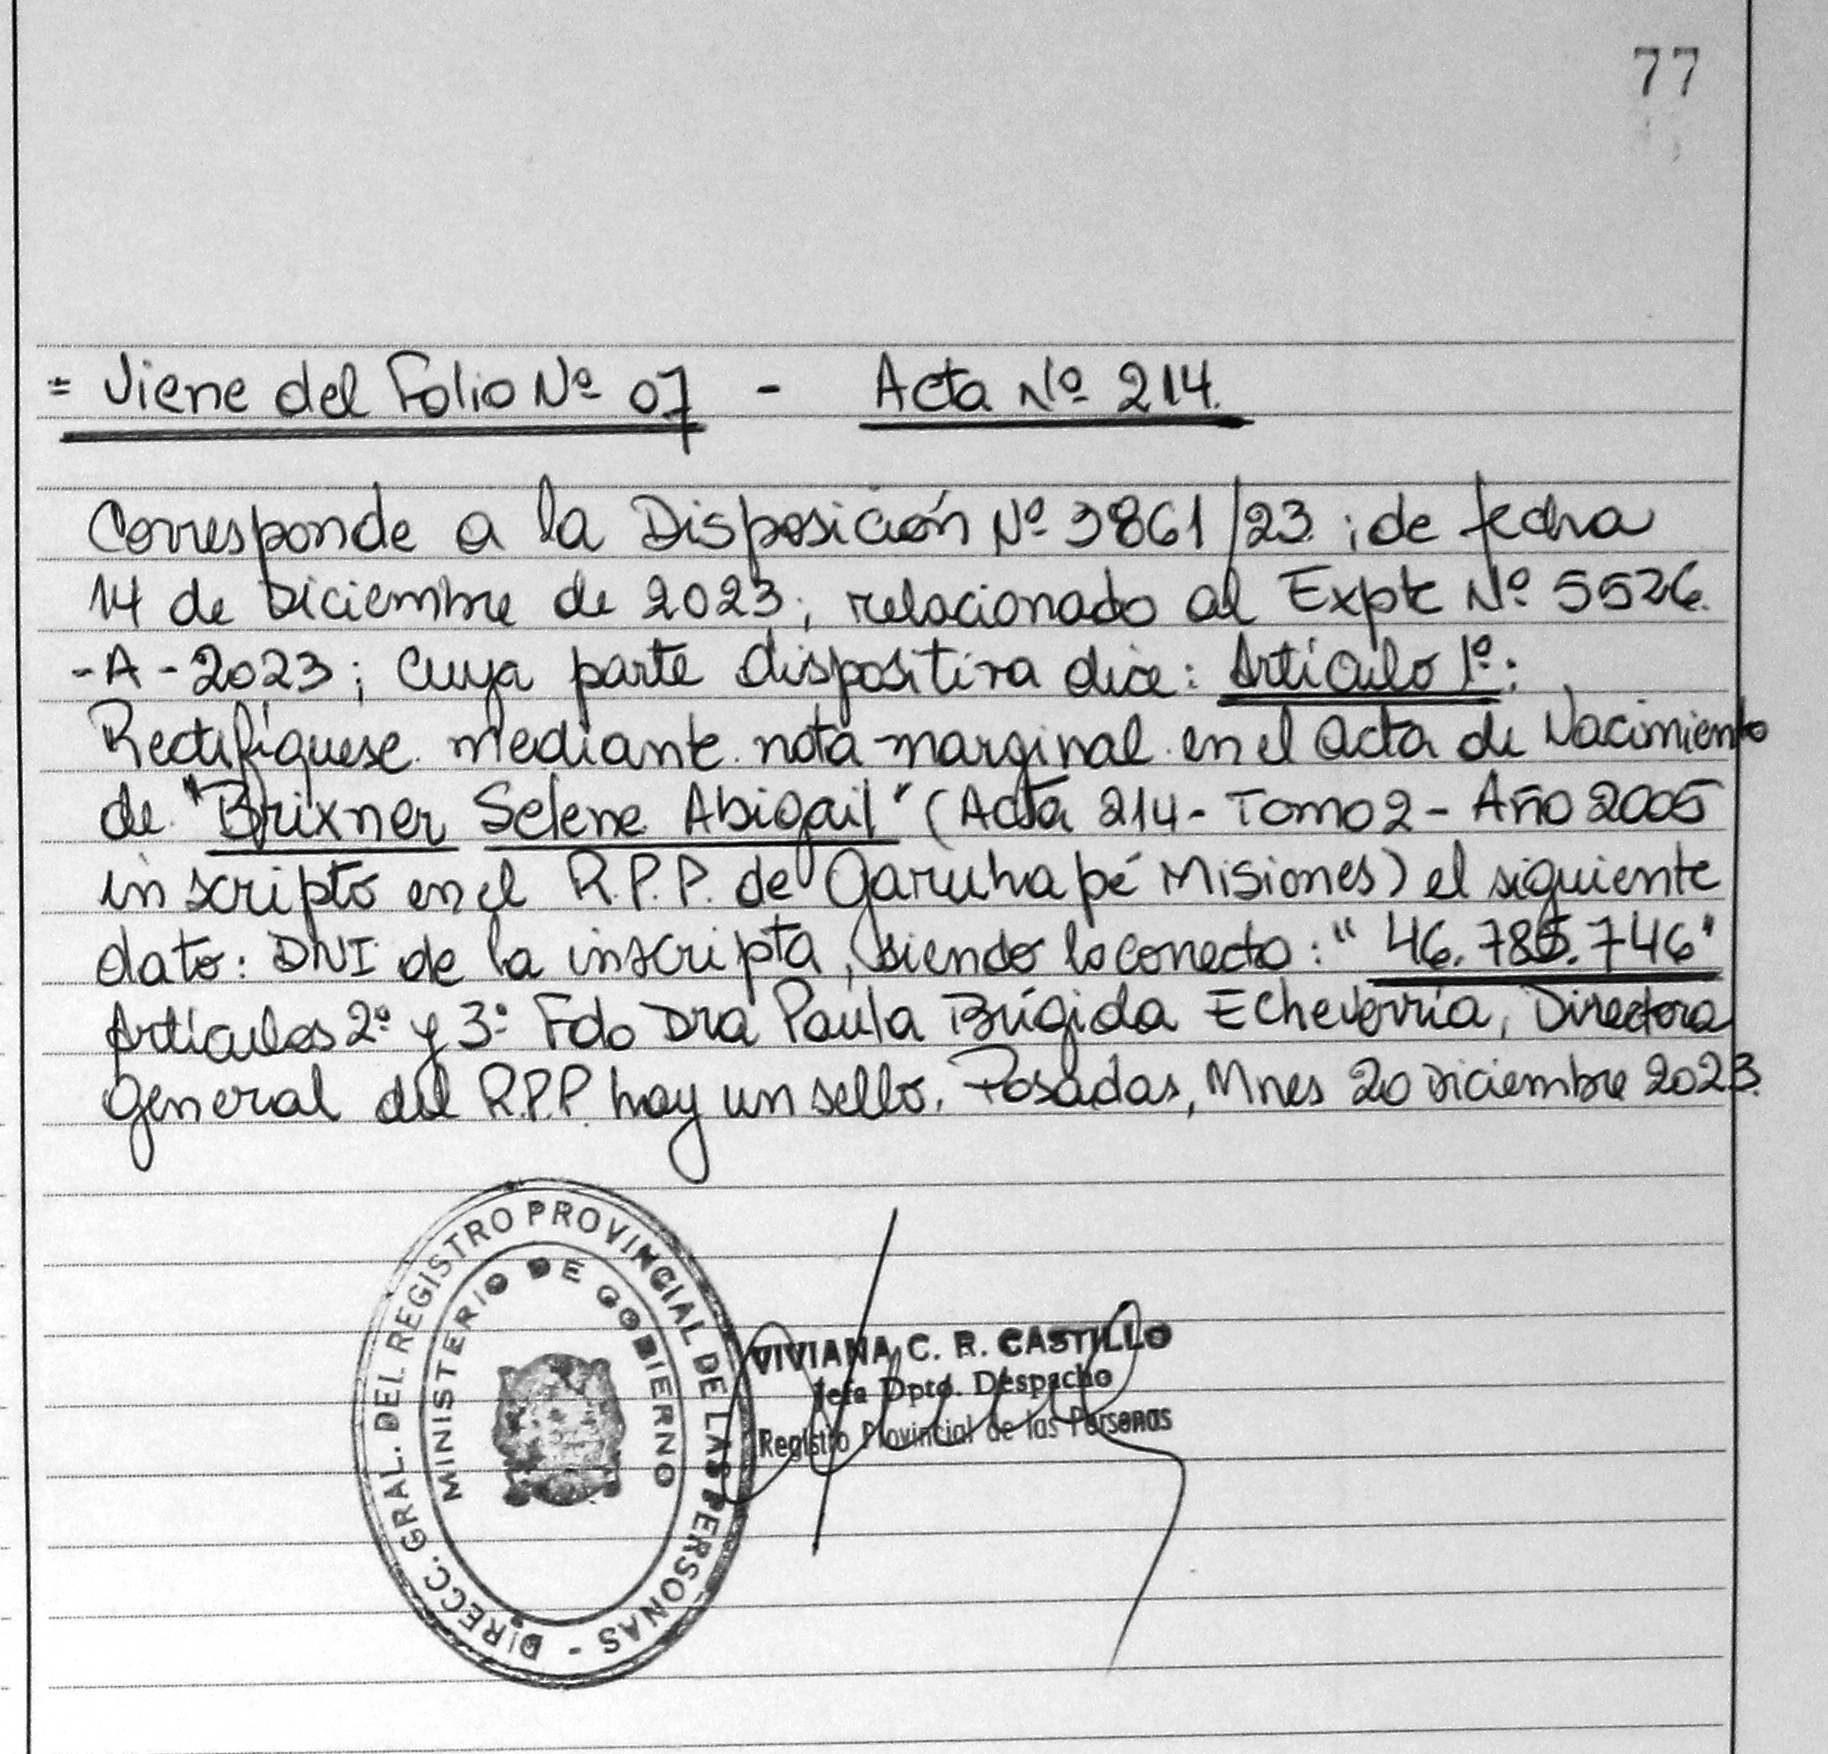 77
= Viene del Folio Nº 07 - Acta Nº 214.
Corresponde a la Disposición Nº 3861/23; de fecha
14 de Diciembre de 2023; relacionado al Expte Nº 5526.
-A-2023; cuya parte dispositiva dice: Artículo 1º:
Rectifíquese mediante nota marginal en el acta de Nacimiento
de "Brixner Selene Abigail" (Acta 214- Tomo 2 - Año 2005
inscripto en el R.P.P. de Garuhapé Misiones) el siguiente
dato: DNI de la inscripta, siendo lo correcto: " 46.785.746"
Artículos 2º y 3º Fdo Dra Paula Brígida Echeverría, Directora
General del R.P.P. hay un sello. Posadas, Mnes 20 Diciembre 2023.
DIRECC. GRAL. DEL REGISTRO PROVINCIAL DE LAS PERSONAS -
MINISTERIO DE GOBIERNO
VIVIANA C. R. CASTILLO
Jefa Dpto. Despacho
Registro Provincial de las Personas